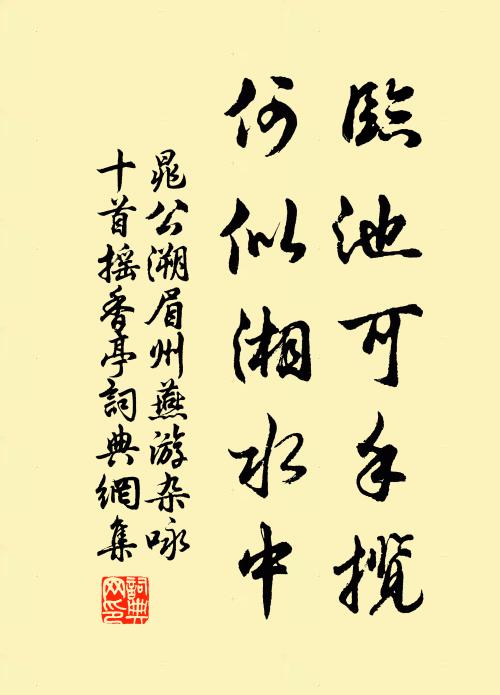 臨池可手攬
何似湘水中
晁公溯眉州燕游杂咏
十首摇香亭詞典網集